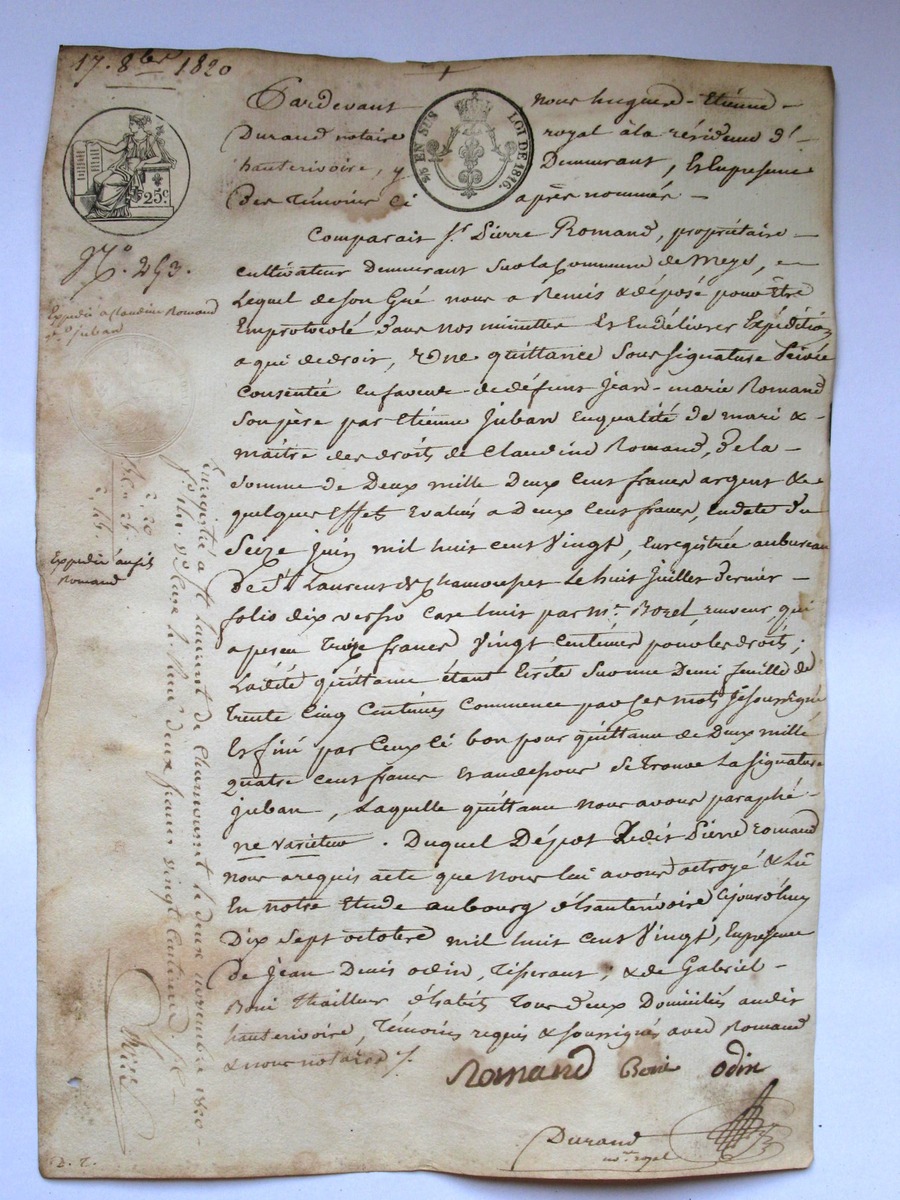 17. 8bre 1820
Pardevant nous hugues-Etienne
Durand notaire royal à la résidence d'
hauterivoire, y Demeurant, et En presence
Des Témoins ci après nommés
EN SUS LOI DE 1816.
25c
N° 293.
Expedié a Claudine Romand
fe Juban
Comparait sr. Pierre Romand, propriétaire
cultivateur demeurant sur la Commune de Meys,
Lequel de son Gré nous a Remis & déposé pour Être
Emprotocolé dans nos minuttes Et En délivrer Expédition
a qui de droit, Une quittance Sous signature Privée
Consentie en faveur de défunt Jean-marie Romand
Son père par Etienne Juban En qualité de mari &
maître des droits de Claudine Romand, de la
Somme de Deux mille Deux Cent francs argent & de
quelques Effets Evalués a deux Cent francs, En date du
Seize Juin mil huit cent Vingt, Enregistrée au bureau
De St Laurent de Chamousset Le huit Juillet dernier
folio dix verso Case huit par Mr. Borel, receveur, qui
a perçu Treize francs Vingt Centimes pour les droits;
La dite quittance étant Ecrite Sur une Demi feuille de
Trente Cinq Centimes Commence par Ces mots Je soussigné
Et fini par Ceux Ci bon pour quittance de Deux mille
quatre cent francs Et au dessous Se Trouve La signature
juban, Laquelle quittance Nous avons paraphé
ne varietur. Duquel Dépot Ledit Pierre romand
nous a requis acte que Nous lui avons octroyé & Lû
En notre Etude au bourg d'hauterivoire Cejourd'huy
Dix Sept octobre mil huit Cent Vingt, En presence
De Jean Denis odin, Tisserant; & de Gabriel
Boni Thailleur d'habits Tous Deux Domiciliés audit
hauterivoire, Témoins requis & soussignés avec Romand
& nous notaire
Expedié au fils
Romand
2, 20
22
2, 42
Enregistré a St Laurent de Chamousset le deux novembre 1820
Reçu deux francs vingt centimes
Romand Boni odin
Durand
nore royal
D. T.